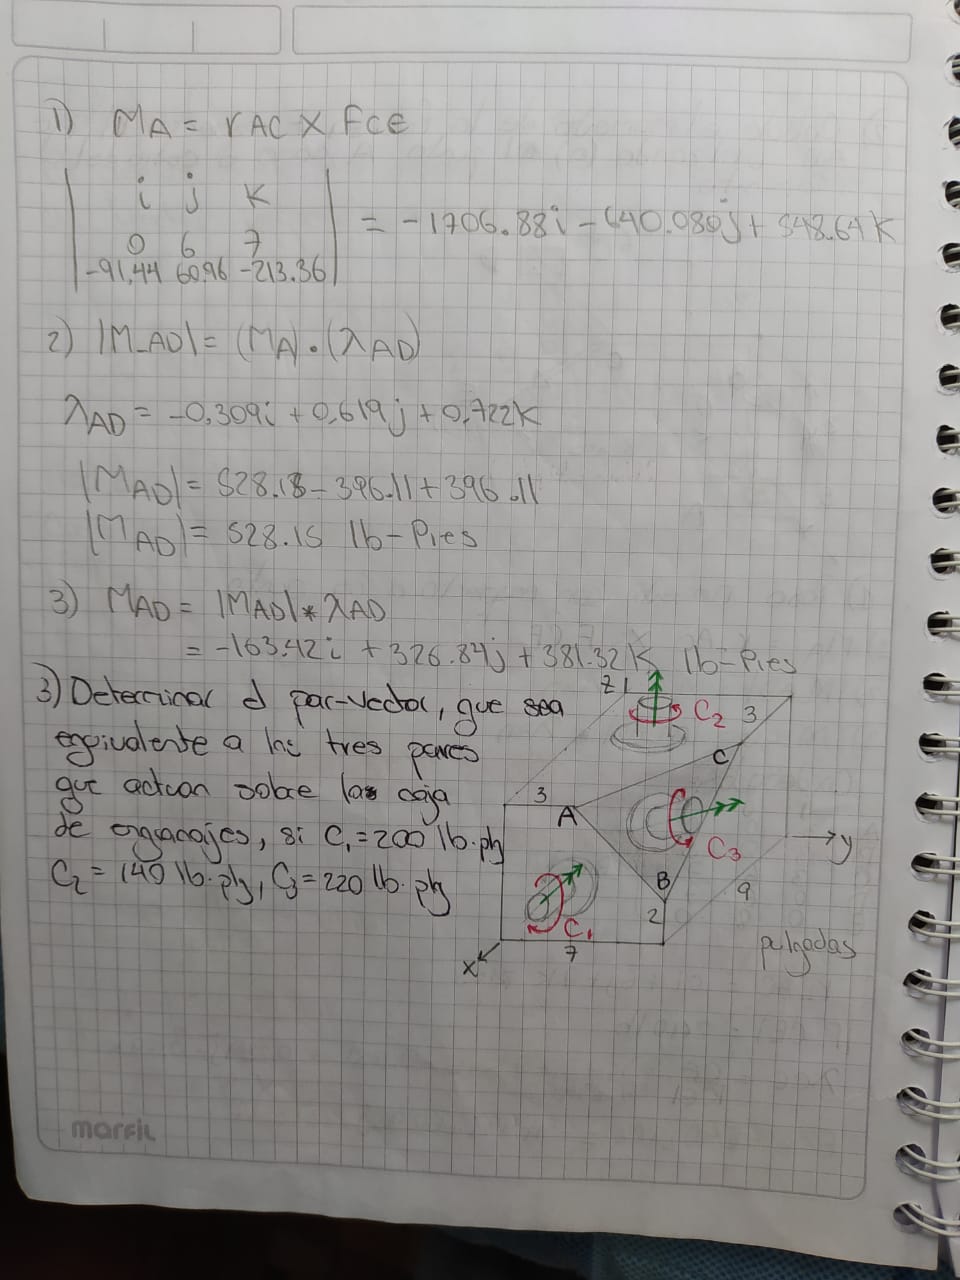 1) MA = rAC x Fce
i j K
0 6 7
-91.44 60.96 -213.36
= -1706.88i - 640.080j + 548.64K
2) |M_AD| = (MA)·(λAD)
λAD = -0.309i + 0,619j + 0,722K
|MAD| = 528.18 - 396.11 + 396.11
|MAD| = 528.15 lb-Pies
3) MAD = |MAD| * λAD
= -163.42i + 326.84j + 381.32K lb-Pies
3) Determinar el par-vector, que sea
equivalente a los tres pares
que actuan sobre las caja
de engranajes, si C1 = 200 lb.plg
C2 = 140 lb.plg, C3 = 220 lb.plg
Z
C2
3
C
3
A
C3
y
B
9
2
C1
7
X
pulgadas
marfil